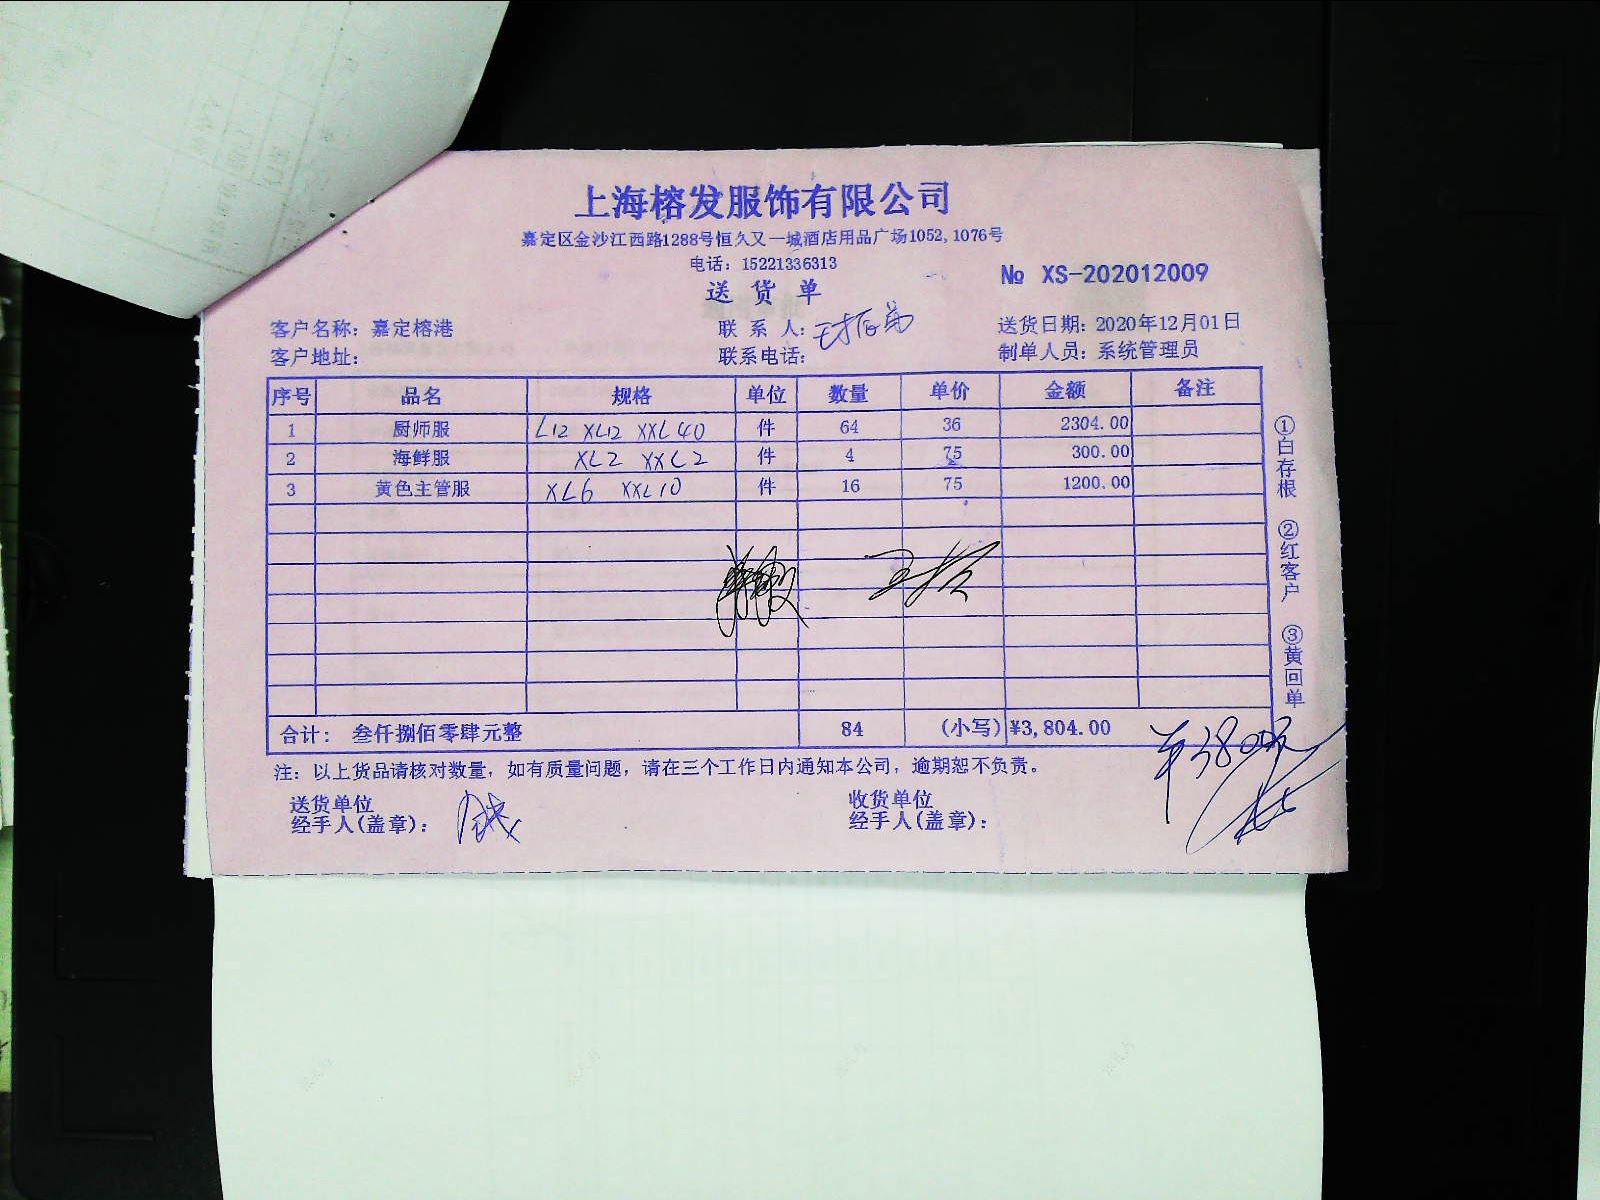 上海榕发服饰有限公司
嘉定区金沙江西路1288号恒久又一城酒店用品广场1052,1076号
电话：15221336313
№ XS-202012009
送 货 单
客户名称：嘉定榕港 联 系 人： 送货日期：2020年12月01日
客户地址： 联系电话： 制单人员：系统管理员
序号 品名 规格 单位 数量 单价 金额 备注
1 厨师服 L12 XL12 XXL40 件 64 36 2304.00
2 海鲜服 XL2 XXL2 件 4 75 300.00
3 黄色主管服 XL6 XXL10 件 16 75 1200.00
合计： 叁仟捌佰零肆元整 84 (小写) ¥3,804.00
①白存根 ②红客户 ③黄回单
注：以上货品请核对数量，如有质量问题，请在三个工作日内通知本公司，逾期恕不负责。
送货单位 收货单位
经手人(盖章)： 经手人(盖章)：